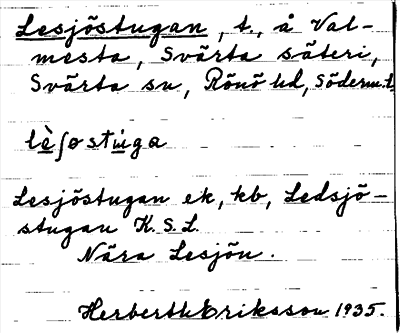 Lesjöstugan, t., å Val-
mesta, Svärta säteri,
Svärta sn, Rönö hd, Söderm.l.
lèʃostúga
Lesjöstugan ek, kb, Ledsjö-
stugan K.S.L.
Nära Lesjön.
Herberth Eriksson 1935.